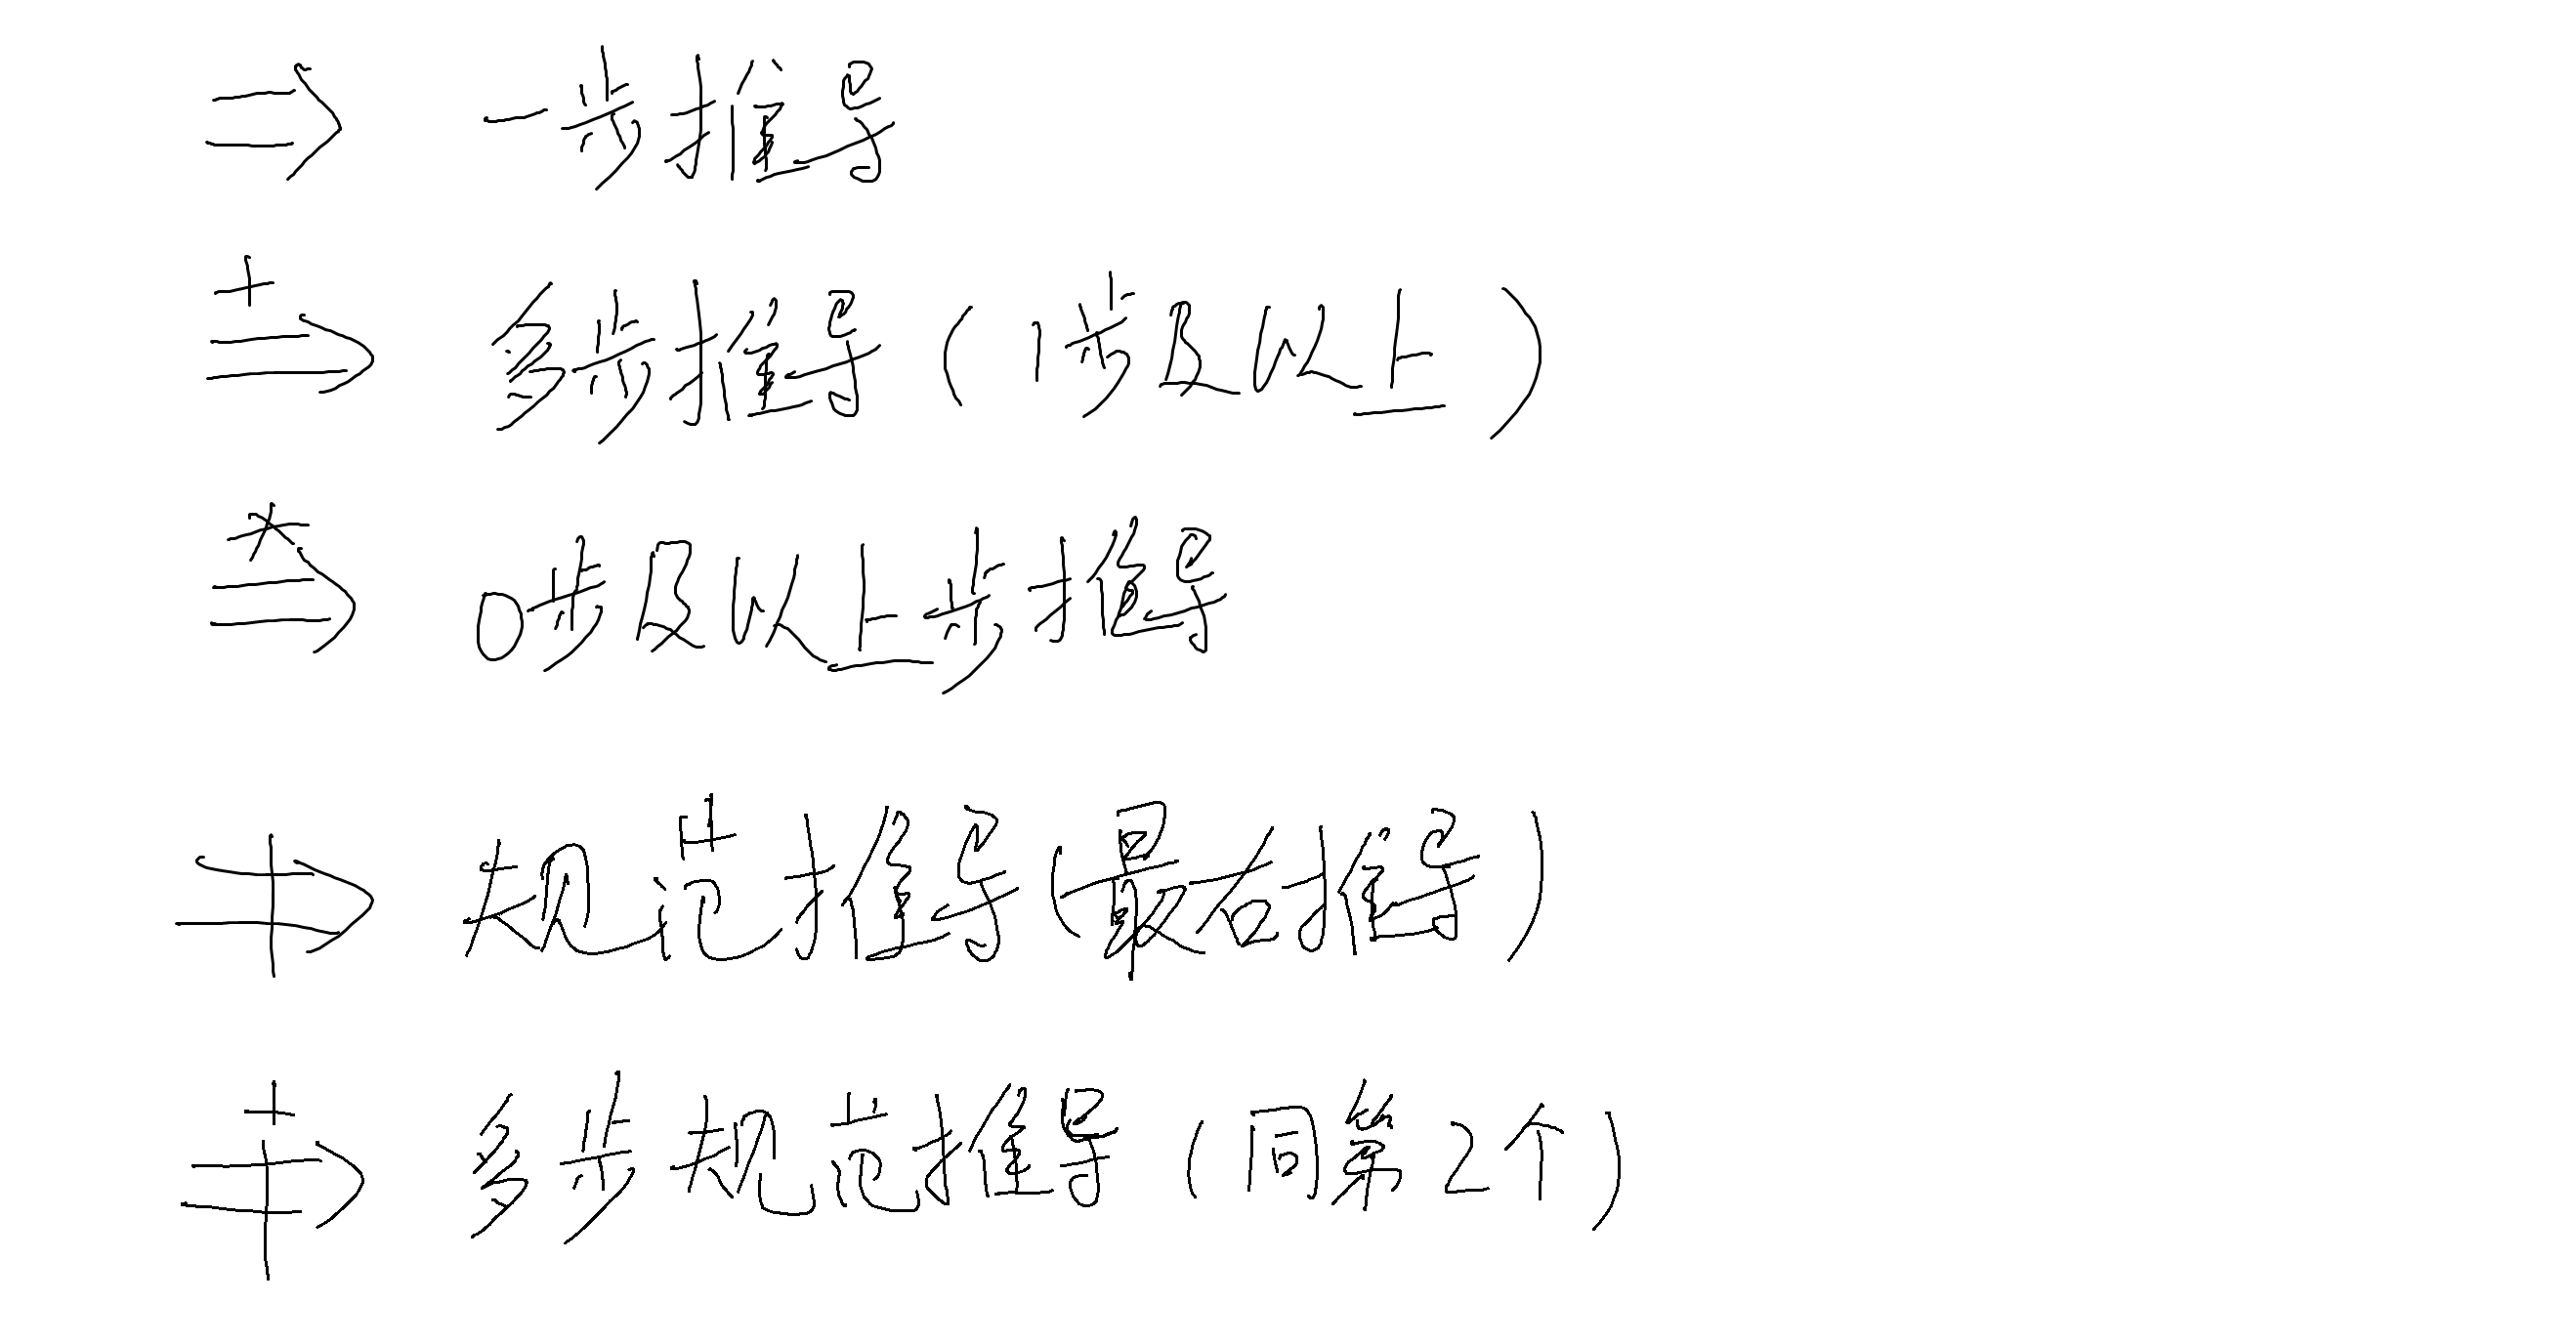 ⇒ 一步推导
+⇒ 多步推导(1步及以上)
*⇒ 0步及以上步推导
⇏ 规范推导(最右推导)
+⇏ 多步规范推导(同第2个)